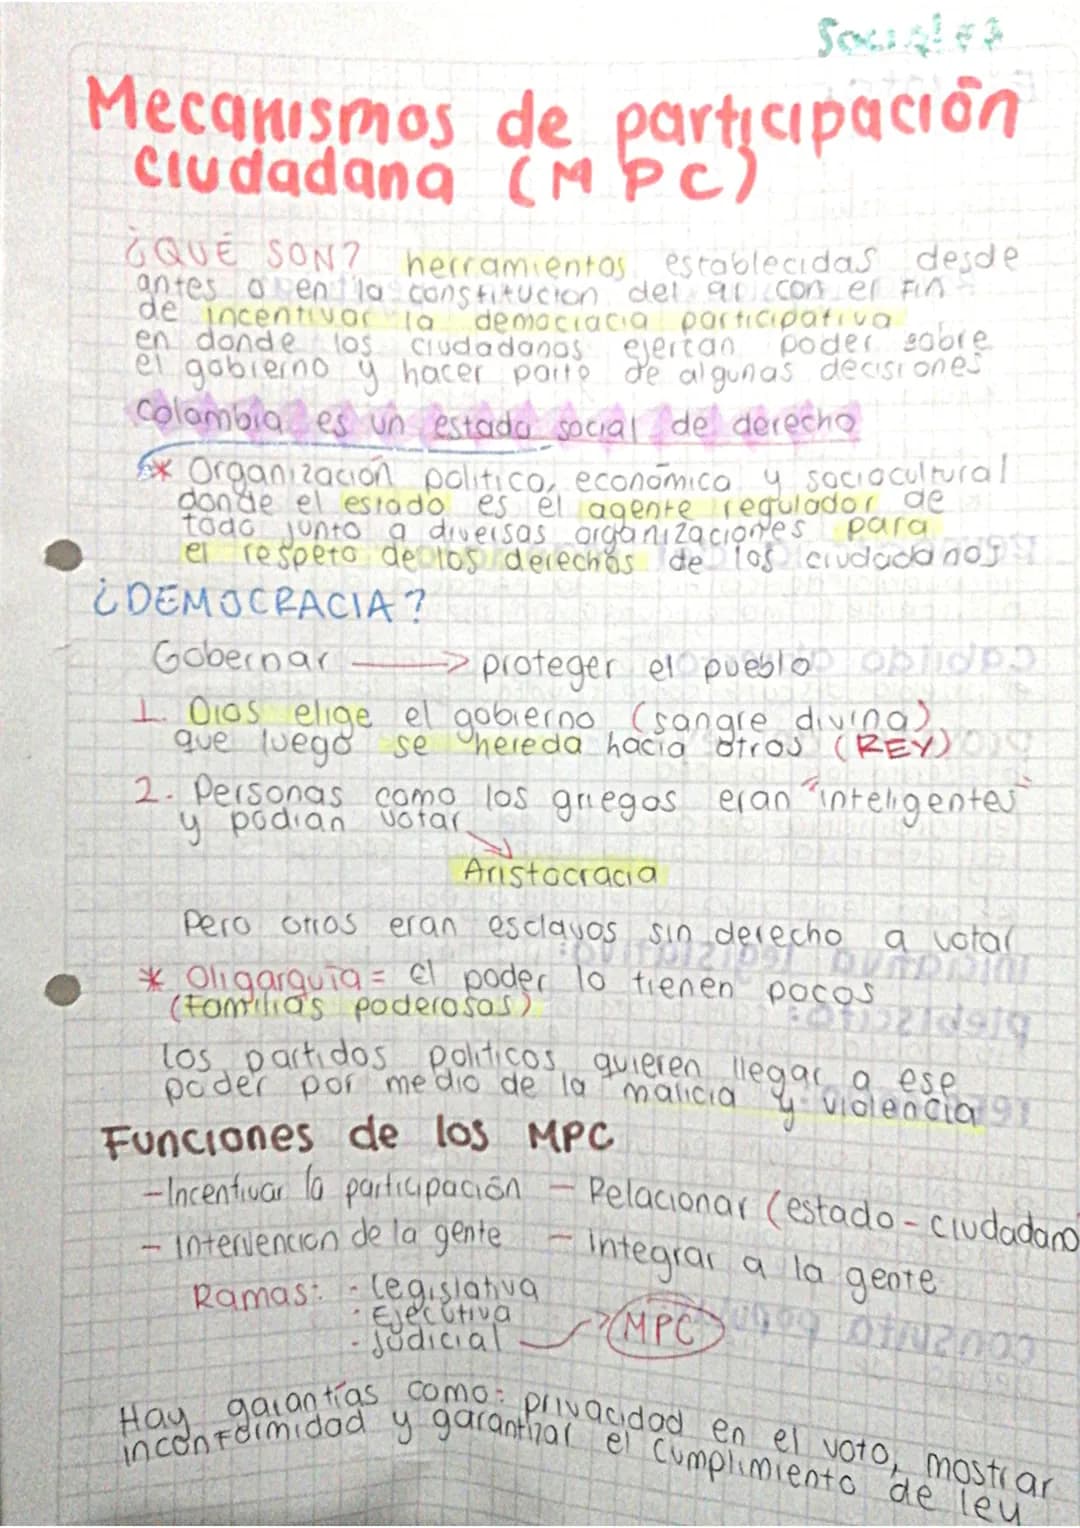 Sociales
Mecanismos de participación
ciudadana (MPC)
¿QUÉ SON? herramientas establecidas desde
antes o en la constitucion del 91 con el fin
de incentivar la democracia participativa
en donde los ciudadanos ejerzan poder sobre
el gobierno y hacer parte de algunas decisiones
Colombia es un estado social de derecho
* Organización politica, económica y sociocultural
donde el estado es el agente regulador de
todo junto a diversas organizaciones para
el respeto de los derechos de los ciudadanos
¿DEMOCRACIA?
Gobernar → proteger el pueblo
1. Dios elige el gobierno (sangre divina)
que luego se hereda hacia otros (REY)
2. Personas como los griegos eran "inteligentes"
y podian votar
Aristocracia
Pero otros eran esclavos sin derecho a votar
* Oligarquía = el poder lo tienen pocos
(familias poderosas)
Los partidos politicos quieren llegar a ese
poder por medio de la malicia y violencia
Funciones de los MPC
- Incentivar la participación - Relacionar (estado - ciudadano
- Intervencion de la gente - Integrar a la gente
Ramas: - Legislativa
- Ejecutiva
- Judicial → MPC
Hay garantías como: privacidad en el voto, mostrar
inconformidad y garantizar el cumplimiento de ley